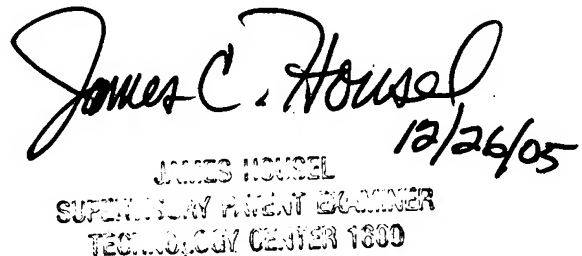 James C. Housel
12/26/05
JAMES HOUSEL
SUPERVISORY PATENT EXAMINER
TECHNOLOGY CENTER 1600